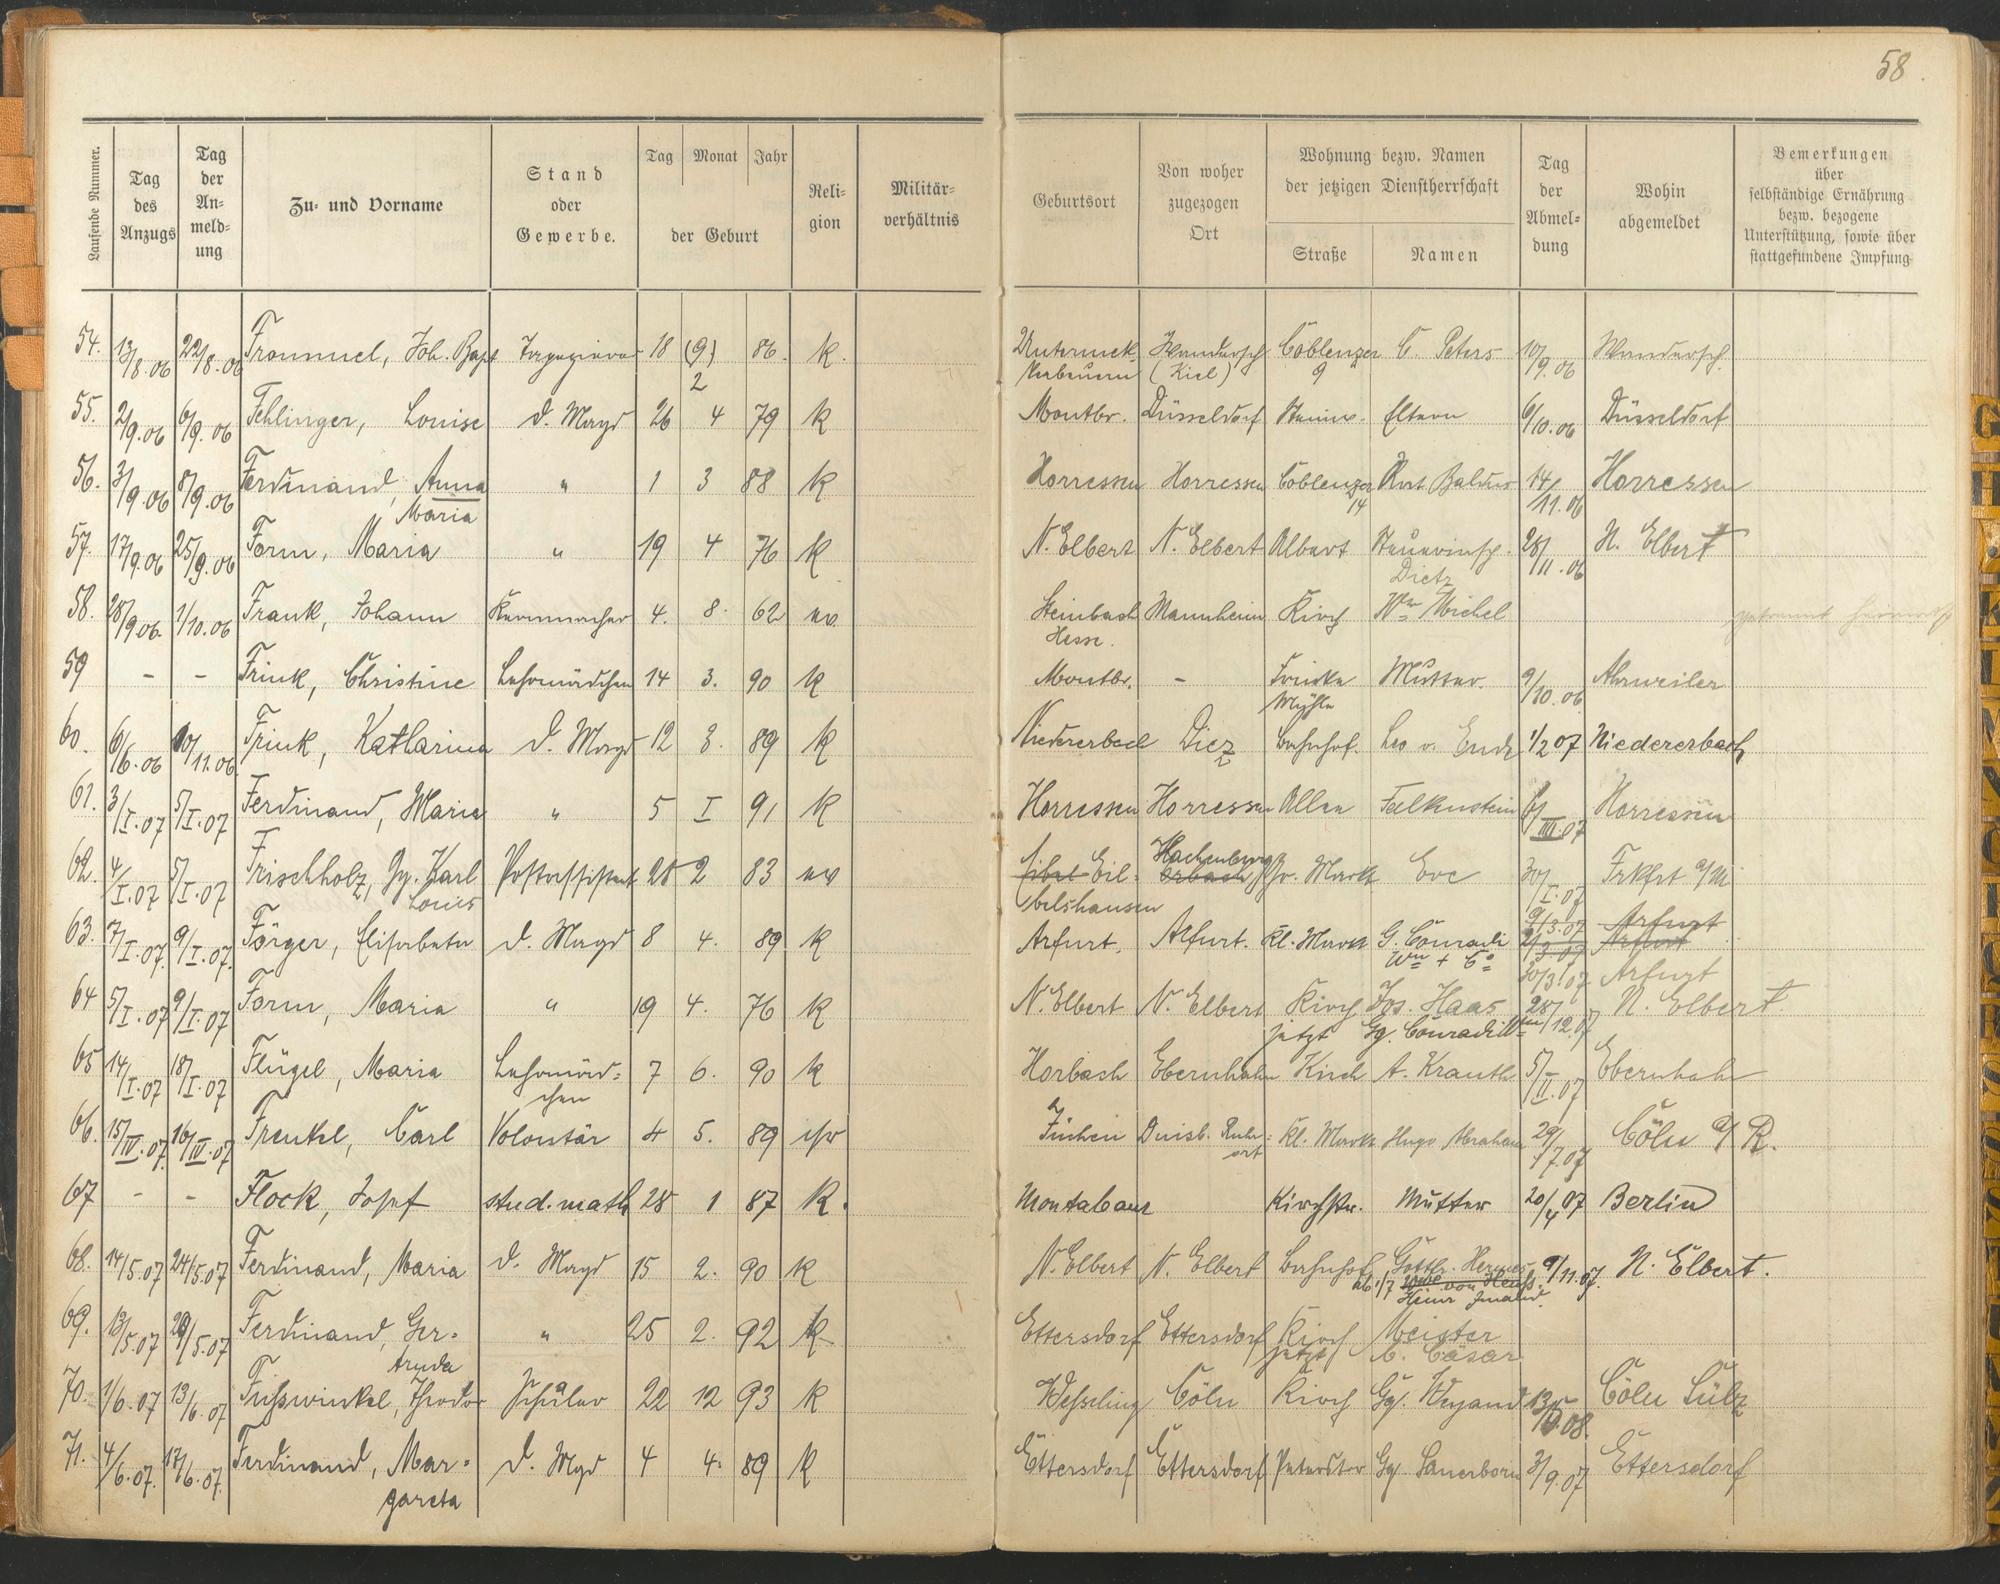 58
Laufende Nummer.
Tag des Anzugs
Tag der An- meld- ung
Zu- und Vorname
Stand oder Gewerbe.
Tag Monat Jahr
der Geburt
Reli- gion
Militär- verhältnis
Geburtsort
Von woher zugezogen Ort
Wohnung bezw. Namen der jetzigen Dienstherrschaft
Straße Namen
Tag der Abmel- dung
Wohin abgemeldet
Bemerkungen über selbständige Ernährung bezw. bezogene Unterstützung, sowie über stattgefundene Impfung
54. 13/8.06 22/8.06 Joh. Bapt 18 (9) 86. k. Coblenzer C. Peters 10/9.06
2 (Kiel) 9
55. 2/9.06 6/9.06 Fehlinger, Louise d. Magd 26 4 79 k Montbr. Düsseldorf Eltern 6/10.06 Düsseldorf
56. 3/9.06 8/9.06 Ferdinand, Anna " 1 3 88 k Horressen Horressen Coblenzer 14/11.06 Horressen
Maria 14
57. 17/9.06 25/9.06 Form, Maria " 19 4 76 k N. Elbert N. Elbert Albert 28/11.06 N. Elbert
Dietz
58. 28/9.06 1/10.06 Frank, Johann 4. 8. 62 ev. Steinbach Mannheim Kirch Ww Michel
Hesse.
59 - - Frink, Christine Lehrmädchen 14 3. 90 k Montbr. - Mutter. 9/10.06 Ahrweiler
Mühle
60. 6/6.06 10/11.06 Frink, Katharina d. Magd 12 3. 89 k Niedererbach Diez Bahnhof. Leo v. Ende 1/2 07 Niedererbach
61. 3/I.07 5/I.07 Ferdinand, Maria " 5 I 91 k Horressen Horressen Allee Falkenstein 6/III.07 Horressen
62. 4/I.07 5/I.07 Frischholz, Gg. Karl Postassistent 28 2 83 ev Eil- Hachenburg Gr. Markt 30/I.07 Frkfrt a/M
Louis
63. 7/I.07. 9/I.07. Förger, Elisabeta d. Magd 8 4. 89 k Arfurt. Arfurt. kl. Markt G. Conradi 9/3.07 Arfurt
Ww + Co 2/3 07 Arfurt
30/3.07 Arfurt
64 5/I.07 9/I.07 Form, Maria " 19 4. 76 k N. Elbert N. Elbert Kirch Jos. Haas 28/12.07 N. Elbert.
jetzt Gg. Conradi Ww
65 14/I.07 18/I.07 Flügel, Maria Lehrmäd- 7 6. 90 k Horbach Ebernhahn Kirch A. Krauth 5/II.07 Ebernhahn
chen
66. 15/IV.07. 16/IV.07 Frenkel, Carl Volontär 4 5. 89 isr Jüchen Duisb. Ruhr- kl. Markt Hugo Abraham 29/7.07 Cöln a/R.
ort
67 - - Flock, Josef stud. math 28 1 87 k. Montabaur Kirchstr. Mutter 20/4 07 Berlin
68. 14/5.07 24/5.07 Ferdinand, Maria d. Magd 15 2. 90 k N. Elbert N. Elbert Bahnhof Gottfr. Hermes 9/11.07. N. Elbert.
ab 1/7
69. 13/5.07 29/5.07 Ferdinand, Ger- " 25 2. 92 k Ettersdorf Ettersdorf Kirch Meister
truda jetzt C. Cäsar
70. 1/6.07 13/6.07 Fusswinkel, Theodor Schüler 22 12 93 k Wesseling Cöln Kirch Gg. Weyand Cöln Sülz
71. 4/6.07. 17/6.07. Ferdinand, Mar- d. Magd 4 4. 89 k Ettersdorf Ettersdorf Peterstor Gg. Sauerborn 3/9.07 Ettersdorf
gareta